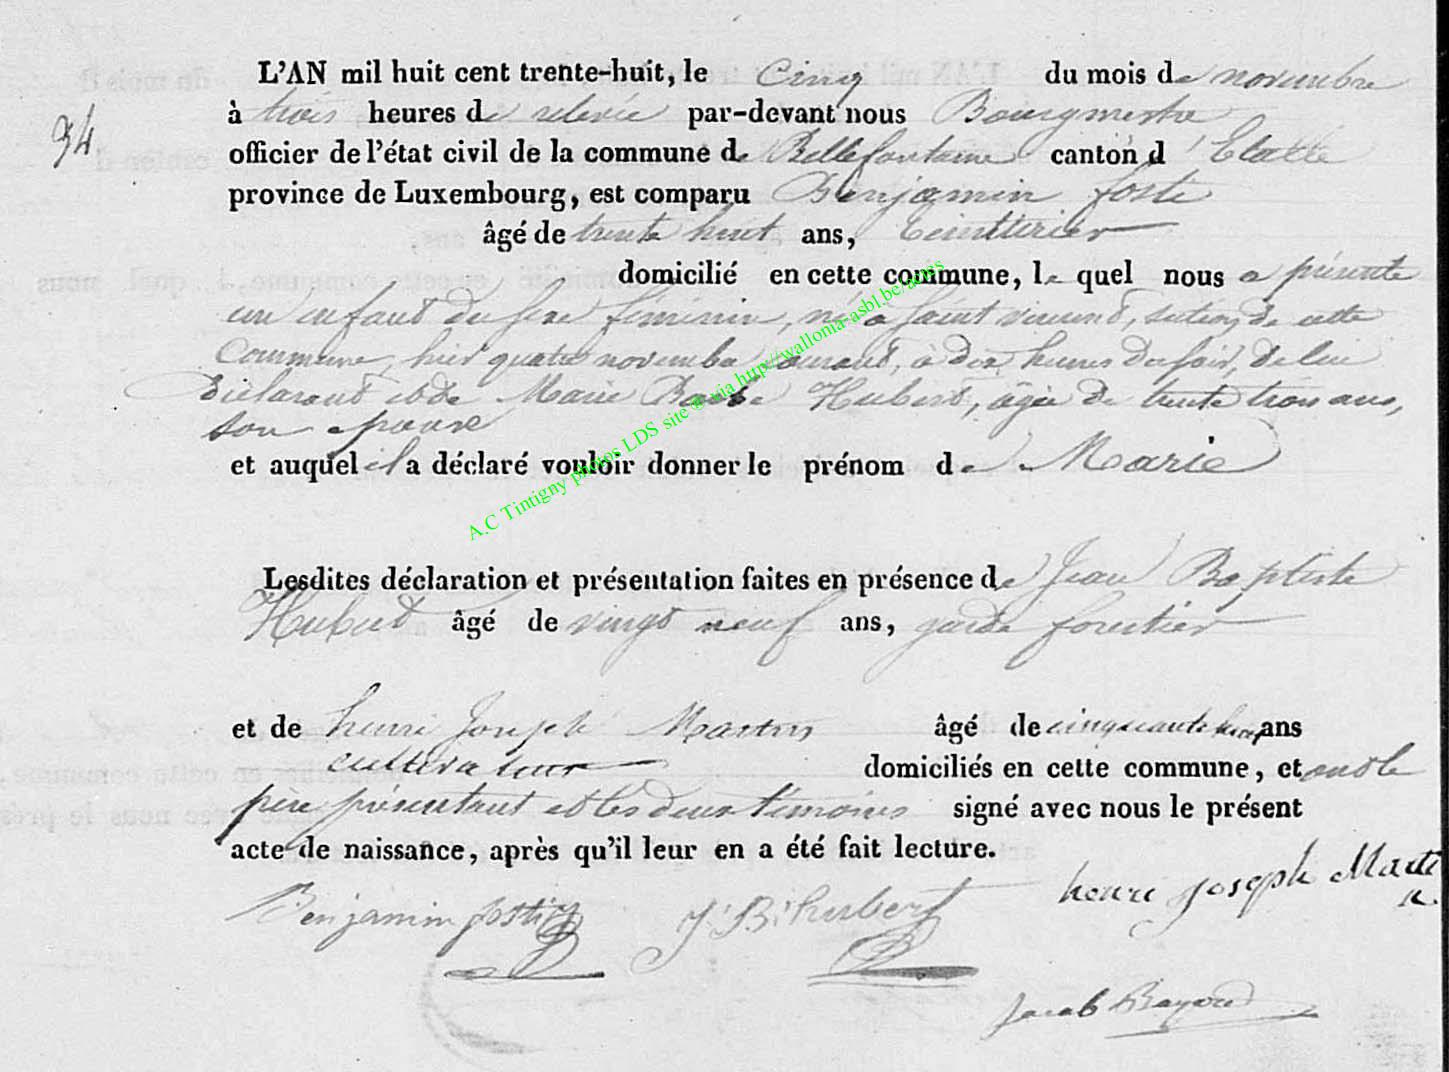 L'AN mil huit cent trente-huit, le Cinq du mois de novembre
à trois heures de relevée par-devant nous Bourgmestre
34
officier de l'état civil de la commune de Bellefontaine canton d' Etalle
province de Luxembourg, est comparu Benjamin
âgé de trente huit ans, teinturier
domicilié en cette commune, le quel nous a présenté
un enfant du sexe féminin, né a Saint vincent, section de cette
Commune, hier quatre novembre courant, à dix heures du soir, de lui
Déclarant et de Marie Barbe Hubert, agée de trente trois ans,
son epouse
et auquel il a déclaré vouloir donner le prénom de Marie
Lesdites déclaration et présentation faites en présence de Jean Baptiste
Hubert âgé de vingt neuf ans, garde forestier
et de henri Joseph Martin âgé de cinquante ans
cultivateur domiciliés en cette commune, et ont le
père présentant et les deux témoins signé avec nous le présent
acte de naissance, après qu'il leur en a été fait lecture.
Benjamin J. B. hubert henri Joseph Marti
n.
Jacob Bayard
A.C Tintigny photos LDS site ® via http://wallonia-asbl.be/actes